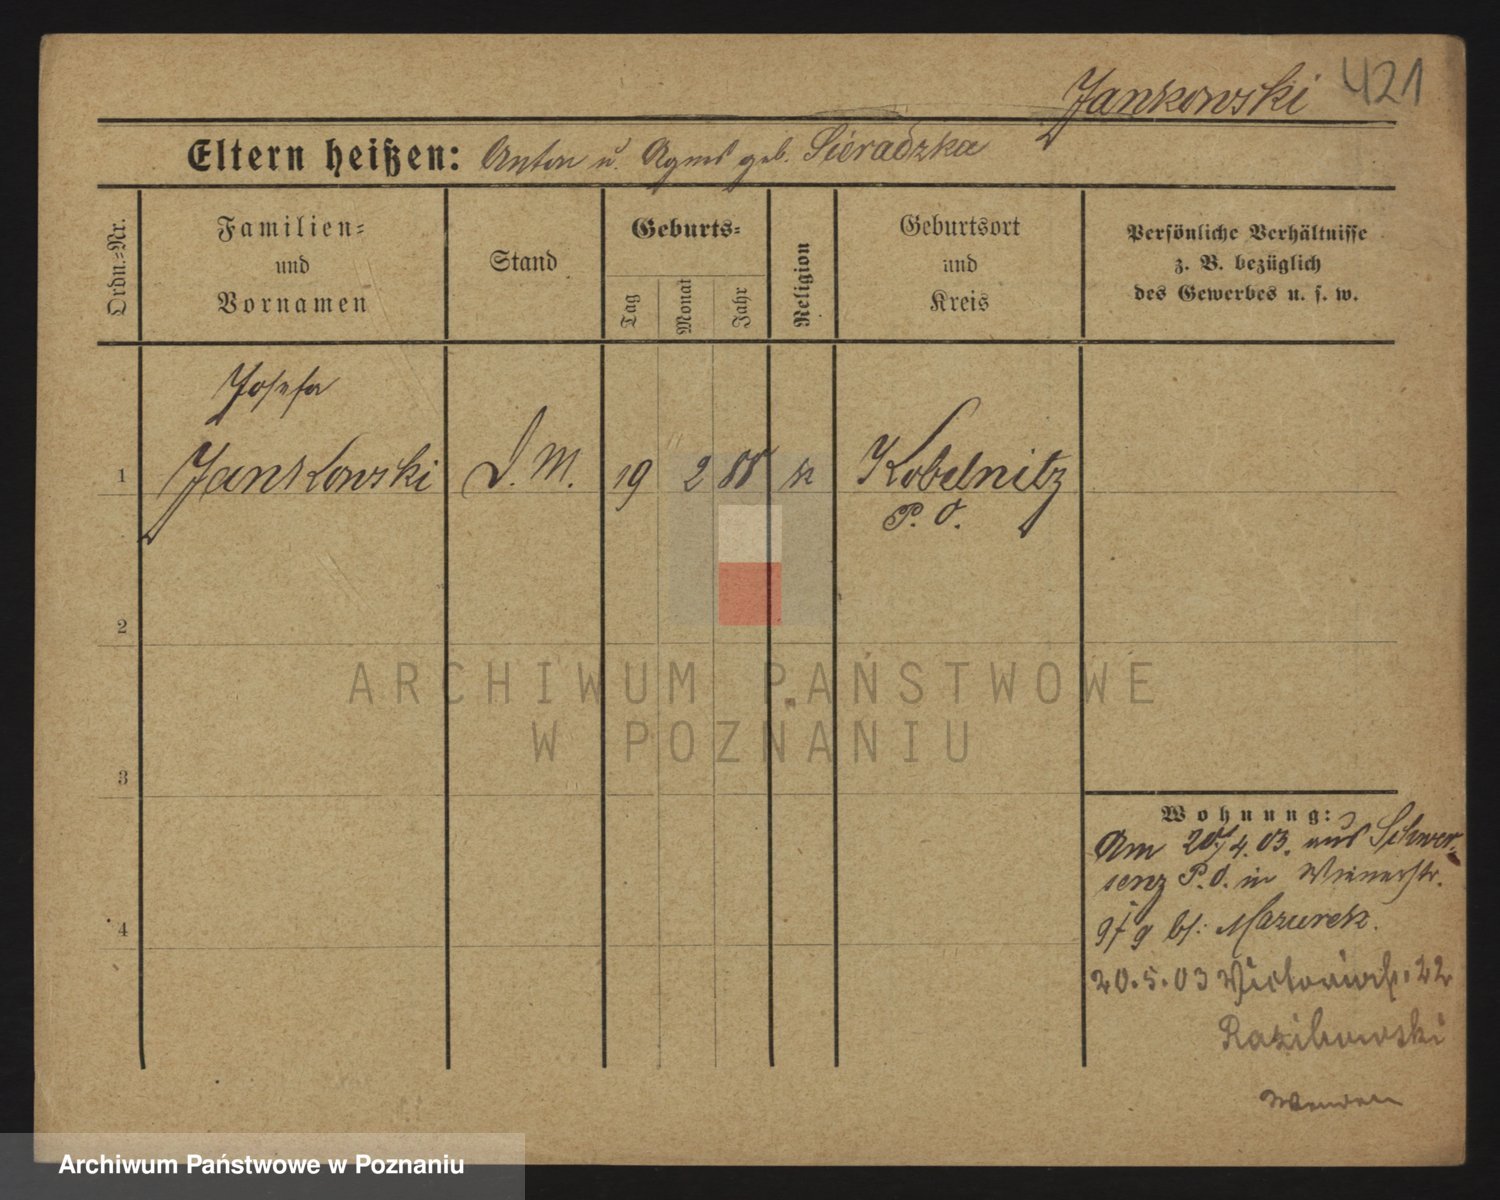 421
Jankowski
Eltern heißen: Anton u. Agnes geb. Sieradzka
Ordn.-Nr.
Familien-
und
Vornamen
Stand
Geburts-
Tag
Monat
Jahr
Religion
Geburtsort
und
Kreis
Persönliche Verhältnisse
z. B. bezüglich
des Gewerbes u. s. w.
Josefa
1 Jankowski D. M. 19 2 88 k Kobelnitz
P. O.
2
3
4
Wohnung:
Am 20/4. 03. aus Schwer-
senz P. O. in Wienerstr.
bei Mazurek.
20.5.03 Victoriastr. 22
Wenden
ARCHIWUM PAŃSTWOWE
W POZNANIU
Archiwum Państwowe w Poznaniu